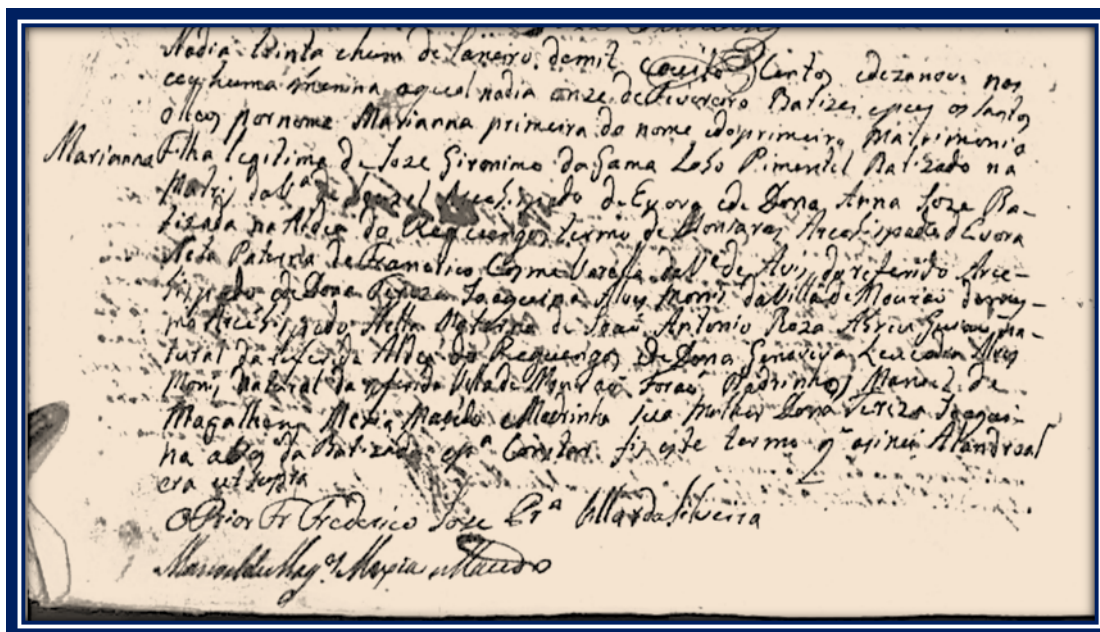 Nadia trinta ehum de Janeiro demil Couito Centos edezanove nas
ceo huma menina aqual nadia onze de Fivereiro Batizei epus os Santos
oleos pornome Marianna primeira do nome edoprimeiro Matrimonio
Marianna Filha legitima de Joze Gironimo da Gama Lobo Pimentel Batizado na
Matriz da V.ª de de Evora ede Dona Anna Joze Ba-
tizada na Aldea do Reguengos termo de Monsaras Arcebispado d'Evora
Neta Paterna de Francisco Cosme Varella da V.ª de Avis do referido Arce-
bispado ede Dona Tereza Joaquina Alvez Moniz da Villa de Mourão domes-
mo Arcebispado Netta Materna de Joaõ Antonio Roza Abreu na-
tural da referida Aldea do Reguengos ede Dona Genoveva Leucadia Alvez
Moniz natural da referida Villa de Mouraõ Foraõ Padrinhos Manoel de
Magalhens Mexia Macedo e Madrinha sua mulher Dona Tereza Joaqui-
na da Batizada e p.ª Constar fiz este termo q' asinei Alandroal
era ut supra
O Prior Fr Frederico Joze Per.ª Villar da Silveira
Manoel de Mag.es Mexia e Macedo